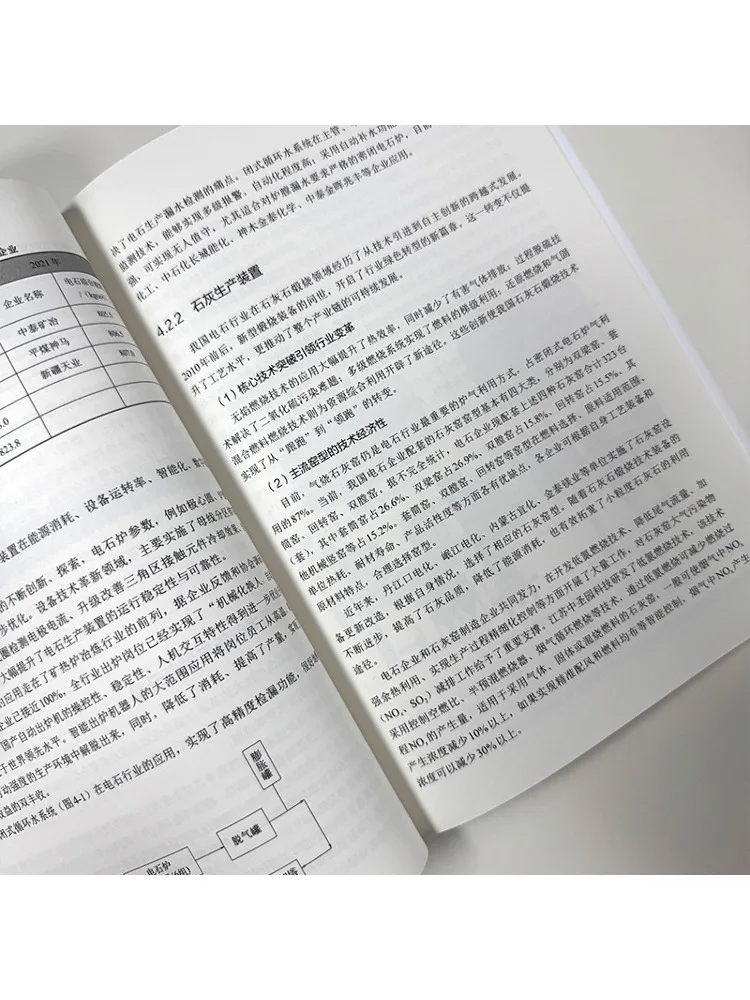 企业
2021 年
企业名称
中泰矿冶
805.5
平煤神马
806.5
新疆天业
807.0
823.8
装置在能源消耗、设备运转率、智能化、
的不断创新、探索、电石炉参数，例如极心圆、
步优化。设备技术革新领域，主要实施了母线分区
偏检测电极电流、升级改善三角区接触元件冷却效果、
大幅提升了电石生产装置的运行稳定性与可靠性。
的应用走在了矿热炉冶炼行业的前列，据企业反馈和协会
企业已接近100%。全行业出炉岗位已经实现了“机械化换人、
国产自动出炉机的操控性、稳定性、人机交互特性得到进一步
于世界领先水平。智能出炉机器人的大范围应用将岗位员工从高温、
动强度的生产环境中解脱出来，同时，降低了消耗、提高了产量，
效益的双丰收。
闭式循环水系统（图4-1）在电石行业的应用，实现了高精度检漏功能，
膨胀罐
脱气罐
电石炉
决了电石生产漏水检测的痛点。闭式循环水系统在主管、
监测技术，能够实现多级报警，自动化程度高；采用自动补水功能
强，可实现无人值守，尤其适合对炉膛漏水要求严格的密闭电石炉，目前
化工、中石化长城能化、神木金泰化学、中泰金晖兆丰等企业应用。
4.2.2 石灰生产装置
我国电石行业在石灰石煅烧领域经历了从技术引进到自主创新的跨越式发展。
2010年前后，新型煅烧装备的问世，开启了行业绿色转型的新篇章。这一转变不仅提
升了工艺水平，更推动了整个产业链的可持续发展。
（1）核心技术突破引领行业变革
无焰燃烧技术的应用大幅提升了热效率，同时减少了有害气体排放；过程脱硫技
术解决了二氧化硫污染难题；多级燃烧系统实现了燃料的梯级利用；还原燃烧和气固
混合燃料燃烧技术则为资源综合利用开辟了新途径。这些创新使我国石灰石煅烧技术
实现了从“跟跑”到“领跑”的转变。
（2）主流窑型的技术经济性
目前，气烧石灰窑仍是电石行业最重要的炉气利用方式，占密闭式电石炉气利
用的87%。当前，我国电石企业配套的石灰窑窑型基本有四大类，分别为双梁窑、套
筒窑、回转窑、双膛窑，据不完全统计，电石企业现配套上述四种石灰窑合计323台
（套），其中套筒窑占26.6%，双梁窑占26.9%，双膛窑占15.8%，回转窑占15.5%，其
他机械竖窑等占15.2%。套筒窑、双膛窑、回转窑等窑型在燃料选择、原料适用范围、
单位热耗、耐材寿命、产品活性度等方面各有优缺点，各企业可根据自身工艺装备和
原材料特点，合理选择窑型。
近年来，丹江口电化、岷江电化、内蒙古宜化、金泰镁业等单位实施了石灰窑设
备更新改造，根据自身情况，选择了相应的石灰窑型。随着石灰石煅烧技术装备的
不断进步，提高了石灰品质，降低了能源消耗，也有效拓宽了小粒度石灰石的利用
途径。
电石企业和石灰窑制造企业共同发力，在开发低氮燃烧技术、降低尾气流量、加
强余热利用、实现生产过程精细化控制等方面开展了大量工作，对石灰窑大气污染物
（NOₓ、SO₂）减排工作给予了重要支撑。江苏中圣园科技研发了低氮燃烧技术，该技术
采用控制空燃比、半预混燃烧器、烟气循环燃烧等技术，通过低氮燃烧可减少燃烧过
程NOₓ的产生量，适用于采用气体、固体或混烧燃料的石灰窑，一般可使烟气中NOₓ
产生浓度减少10%以上，如果实现精准配风和燃料均布等智能控制，烟气中NOₓ产生
浓度可以减少30%以上。